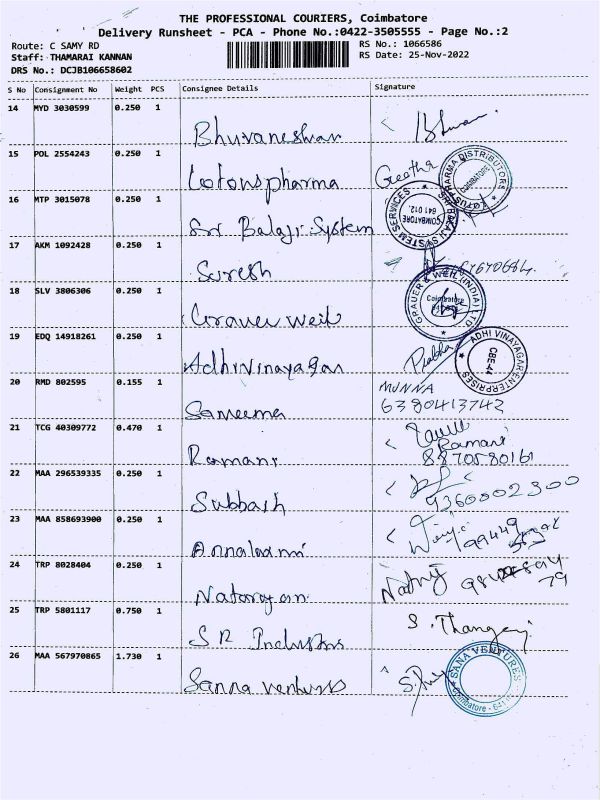 THE PROFESSIONAL COURIERS, Coimbatore
Delivery Runsheet - PCA - Phone No.:0422-3505555 - Page No.:2
Route: C SAMY RD
RS No.: 1066586
Staff: THAMARAI KANNAN
RS Date: 25-Nov-2022
DRS No.: DCJB106658602
S No Consignment No Weight PCS Consignee Details Signature
14 MYD 3030599 0.250 1
Bhuvaneshwar
15 POL 2554243 0.250 1
Lotouspharma Geetha
LOTUS PHARMA DISTRIBUTORS Coimbatore
16 MTP 3015078 0.250 1
Sri Balaji System
SRI BALAJI SYSTEM SERVICES COIMBATORE 641 012.
17 AKM 1092428 0.250 1
Suresh
18 SLV 3806306 0.250 1
Grauer weil
GRAUER & WEIL (INDIA) LTD Coimbatore
19 EDQ 14918261 0.250 1
Adhivinayagar Prabha
ADHI VINAYAGAR ENTERPRISES CBE-44
20 RMD 802595 0.155 1
Sameema MUNNA
6380413742
21 TCG 40309772 0.470 1
Ramani Ramani
8870580161
22 MAA 296539335 0.250 1
Subbash 9360002300
23 MAA 858693900 0.250 1
Annalaxmi
24 TRP 8028404 0.250 1
Natarayan
25 TRP 5801117 0.750 1
SR Industris S. Thangaraj
26 MAA 567970865 1.730 1
Sanna ventures
SANA VENTURES Coimbatore